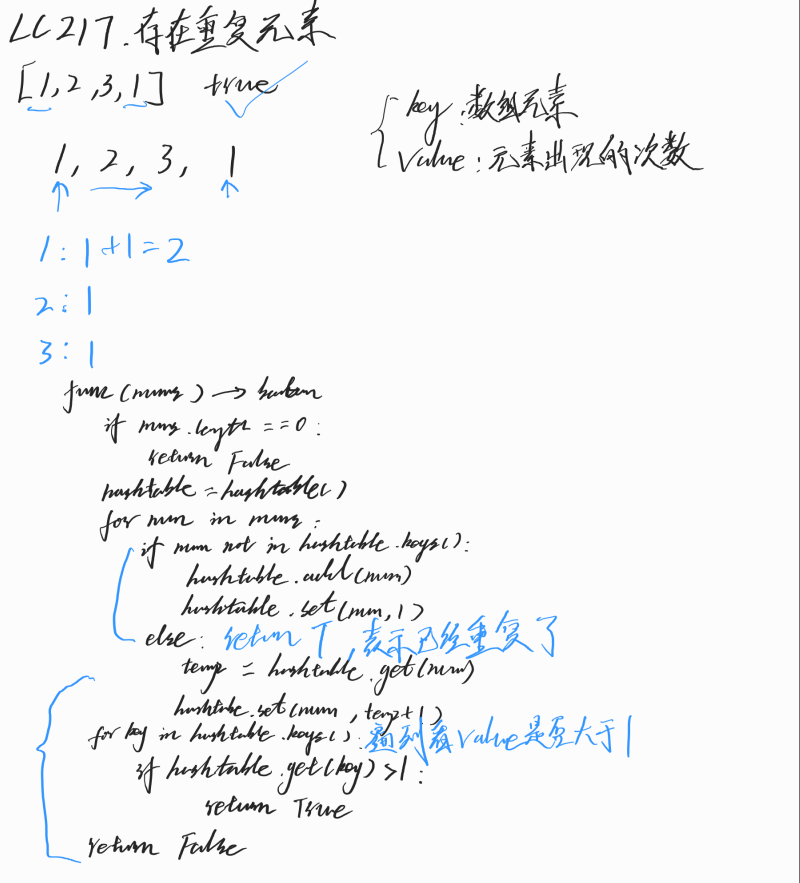 LC217.存在重复元素
[1,2,3,1] true
key:数组元素
value:元素出现的次数
1, 2, 3, 1
1:1+1=2
2:1
3:1
func(nums) → boolean
if nums.length ==0:
return False
hashtable=hashtable()
for num in nums:
if num not in hashtable.keys():
hashtable.add(num)
hashtable.set(num,1)
else: return T,表示已经重复了
temp = hashtable.get(num)
hashtable.set(num,temp+1)
for key in hashtable.keys(): 遍列看value是否大于1
if hashtable.get(key)>1:
return True
return False